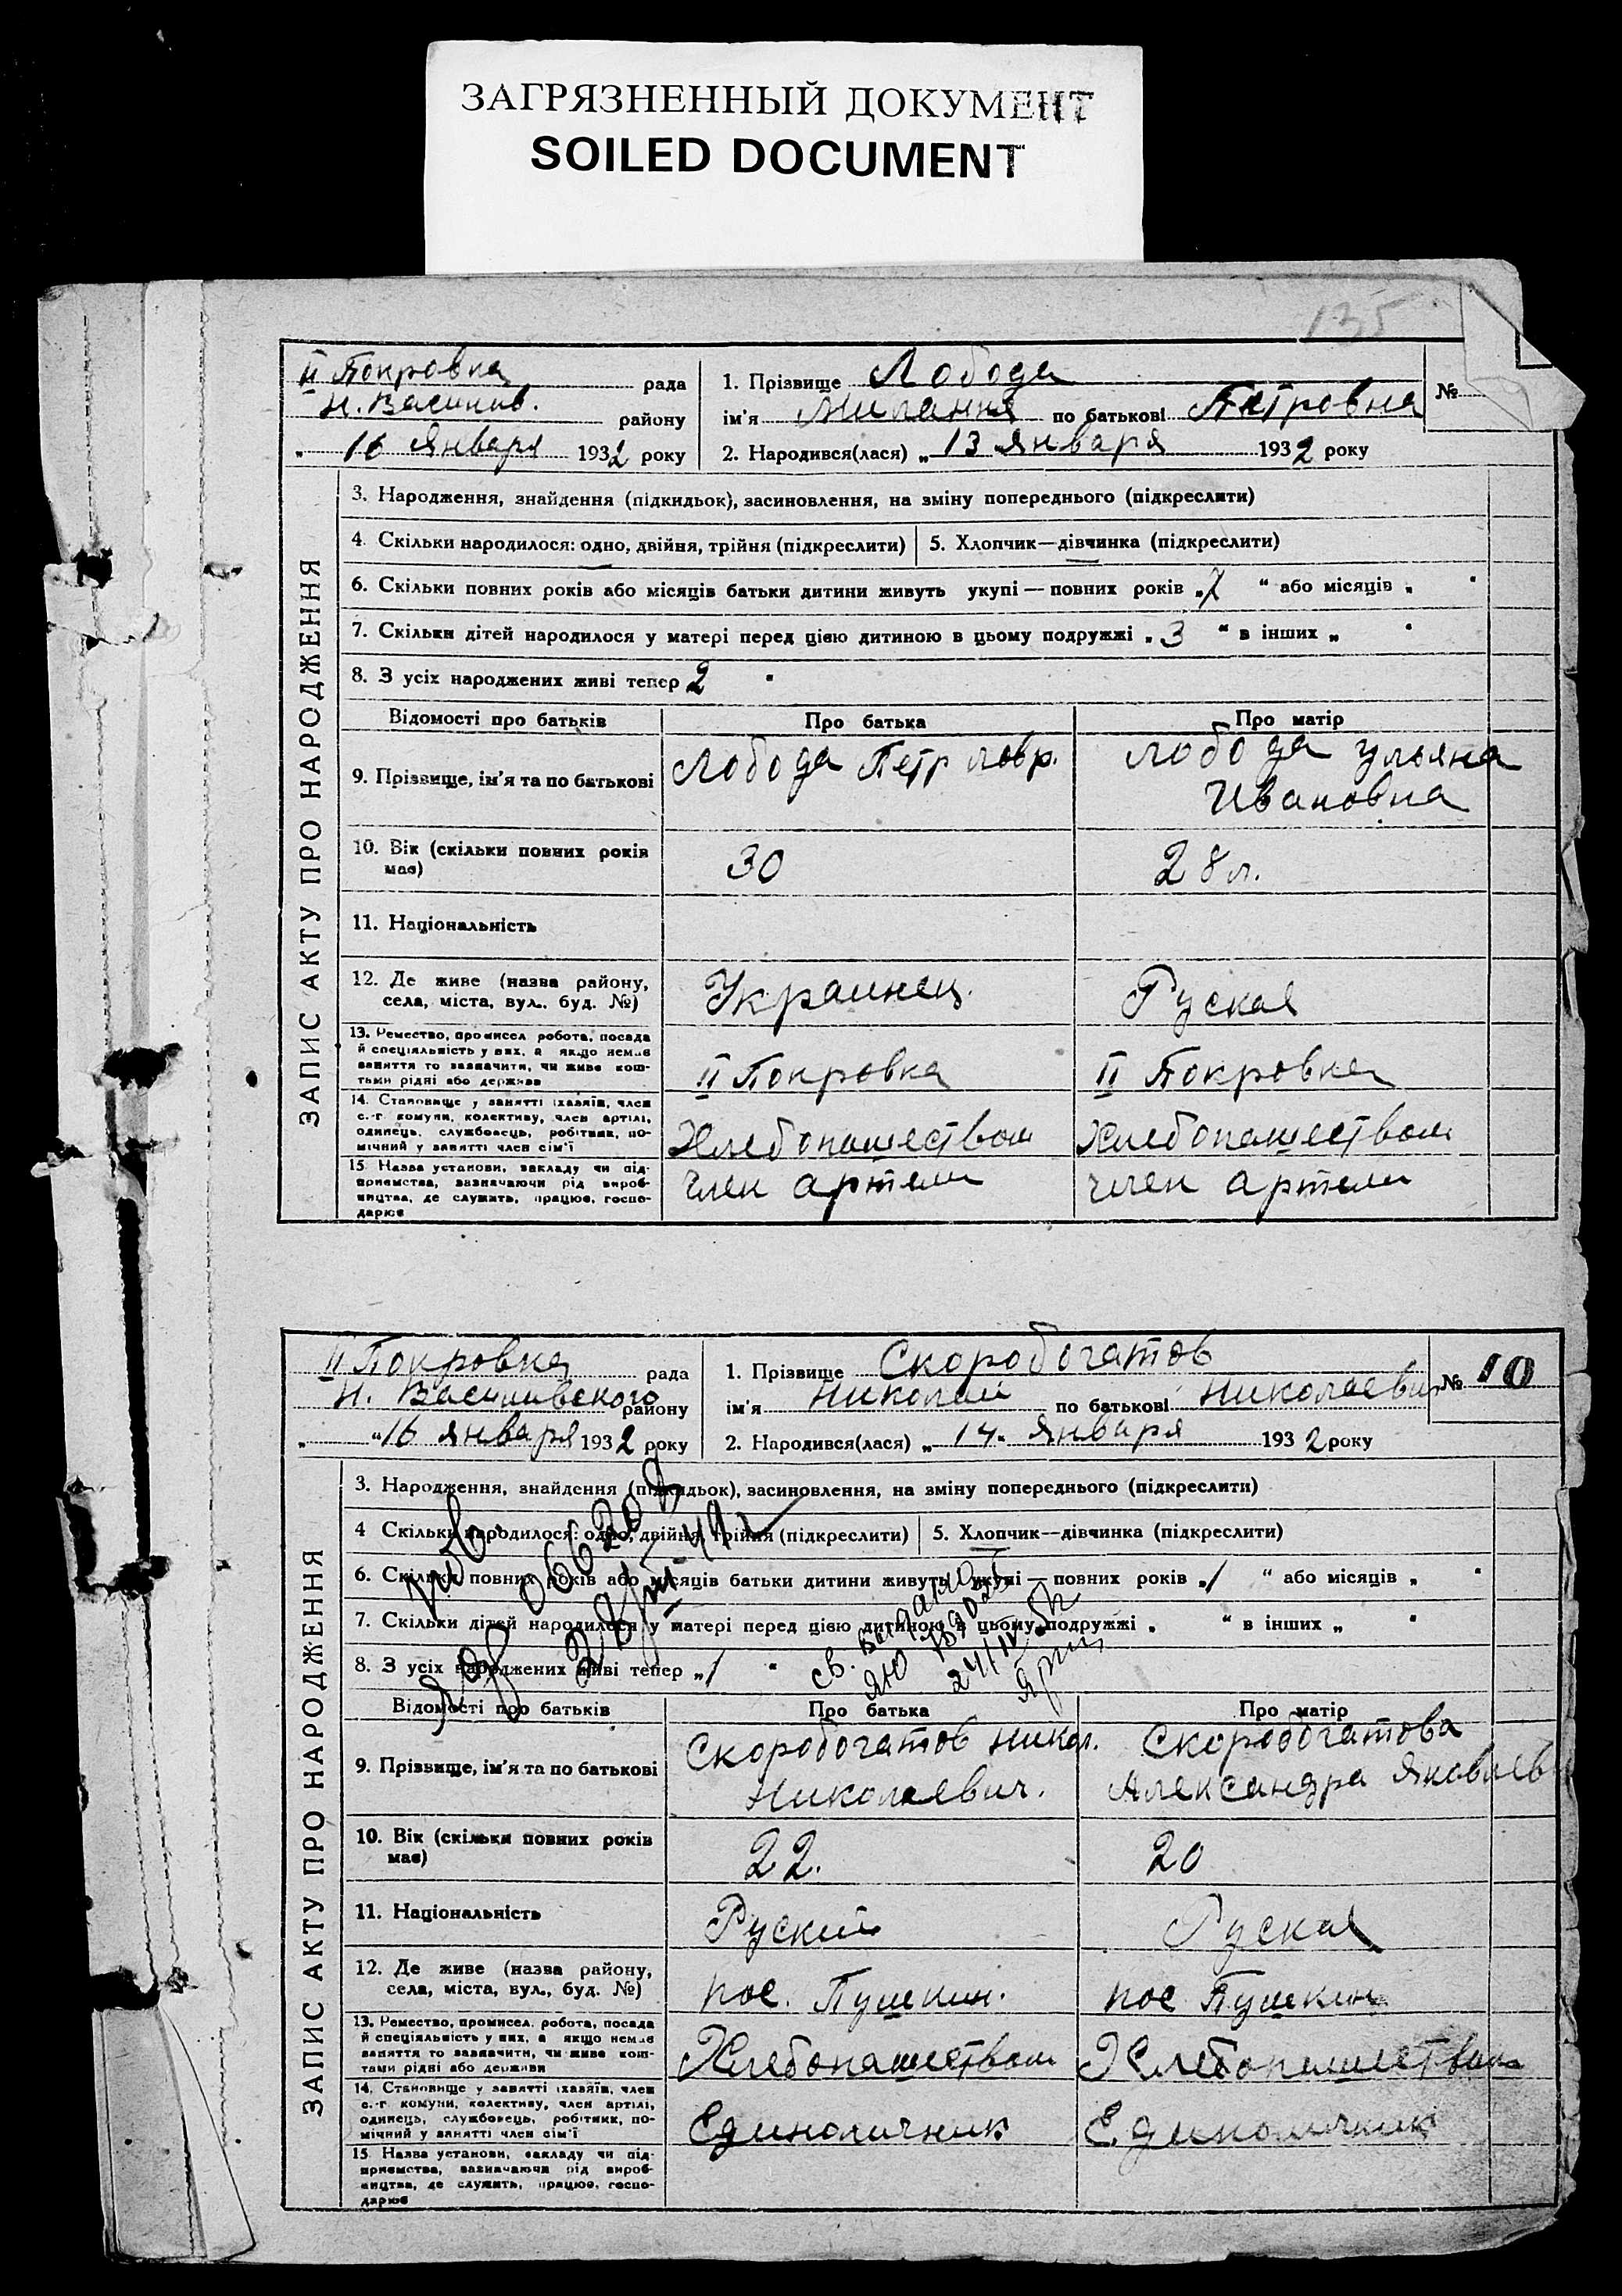 ЗАГРЯЗНЕННЫЙ ДОКУМЕНТ
SOILED DOCUMENT
135
II Покровка рада
Н. Васиљив. району
„ 16 января 1932 року
1. Прізвище Лобода
ім'я Милания по батькові Петровна
2. Народився(лася) „ 13 января 1932 року
№
ЗАПИС АКТУ ПРО НАРОДЖЕННЯ
3. Народження, знайдення (підкидьок), засиновлення, на зміну попереднього (підкреслити)
4. Скільки народилося: одно, двійня, трійня (підкреслити) 5. Хлопчик—дівчинка (підкреслити)
6. Скільки повних років або місяців батьки дитини живуть укупі — повних років „ 7 “ або місяців „
7. Скільки дітей народилося у матері перед цією дитиною в цьому подружжі „ 3 “ в інших „
8. З усіх народжених живі тепер 2
Відомості про батьків Про батька Про матір
9. Прізвище, ім'я та по батькові Лобода Петр Лавр. Лобода Ульяна
Ивановна
10. Вік (скільки повних років має) 30 28 л.
11. Національність
12. Де живе (назва району,
села, міста, вул., буд. №) Украинец. Руская
13. Ремество, промисел, робота, посада
й спеціяльність у них, а якщо немає
заняття то зазначити, чи живе кош-
тами рідні або держави II Покровка II Покровка
14. Становище у занятті (хазяїн, член
с.-г. комуни, колективу, член артілі,
одинець, службовець, робітник, по-
мічний у занятті член сім'ї Хлебопашеством Хлебопашеством
15. Назва установи, закладу чи під-
приємства, зазначаючи рід вироб-
ництва, де служить, працює, госпо-
дарює член артели член артели
II Покровка рада
Н. Васильевского району
„ “ 16 января 1932 року
1. Прізвище Скоробогатов
ім'я Николай по батькові Николаевич
2. Народився(лася) „ 14. января 1932 року
№ 10
ЗАПИС АКТУ ПРО НАРОДЖЕННЯ
3. Народження, знайдення (підкидьок), засиновлення, на зміну попереднього (підкреслити)
4 Скільки народилося: одно, двійня, трійня (підкреслити) 5. Хлопчик—дівчинка (підкреслити)
6. Скільки повних років або місяців батьки дитини живуть укупі — повних років „ 1 “ або місяців „
7. Скільки дітей народилося у матері перед цією дитиною в цьому подружжі „ “ в інших „
8. З усіх народжених живі тепер „ 1 “
Відомості про батьків Про батька Про матір
9. Прізвище, ім'я та по батькові Скоробогатов Никол. Скоробогатова
Николаевич. Александра Яковлев
10. Вік (скільки повних років має) 22. 20
11. Національність Руский Руская
12. Де живе (назва району,
села, міста, вул., буд. №) пос. Пушкин. пос Пушкин
13. Ремество, промисел, робота, посада
й спеціяльність у них, а якщо немає
заняття то зазначити, чи живе кош-
тами рідні або держави Хлебопашеством Хлебопашеством
14. Становище у занятті (хазяїн, член
с.-г. комуни, колективу, член артілі,
одинець, службовець, робітник, по-
мічний у занятті член сім'ї Единоличник Единоличник
15 Назва установи, закладу чи під-
приємства, зазначаючи рід вироб-
ництва, де служить, працює, госпо-
дарює